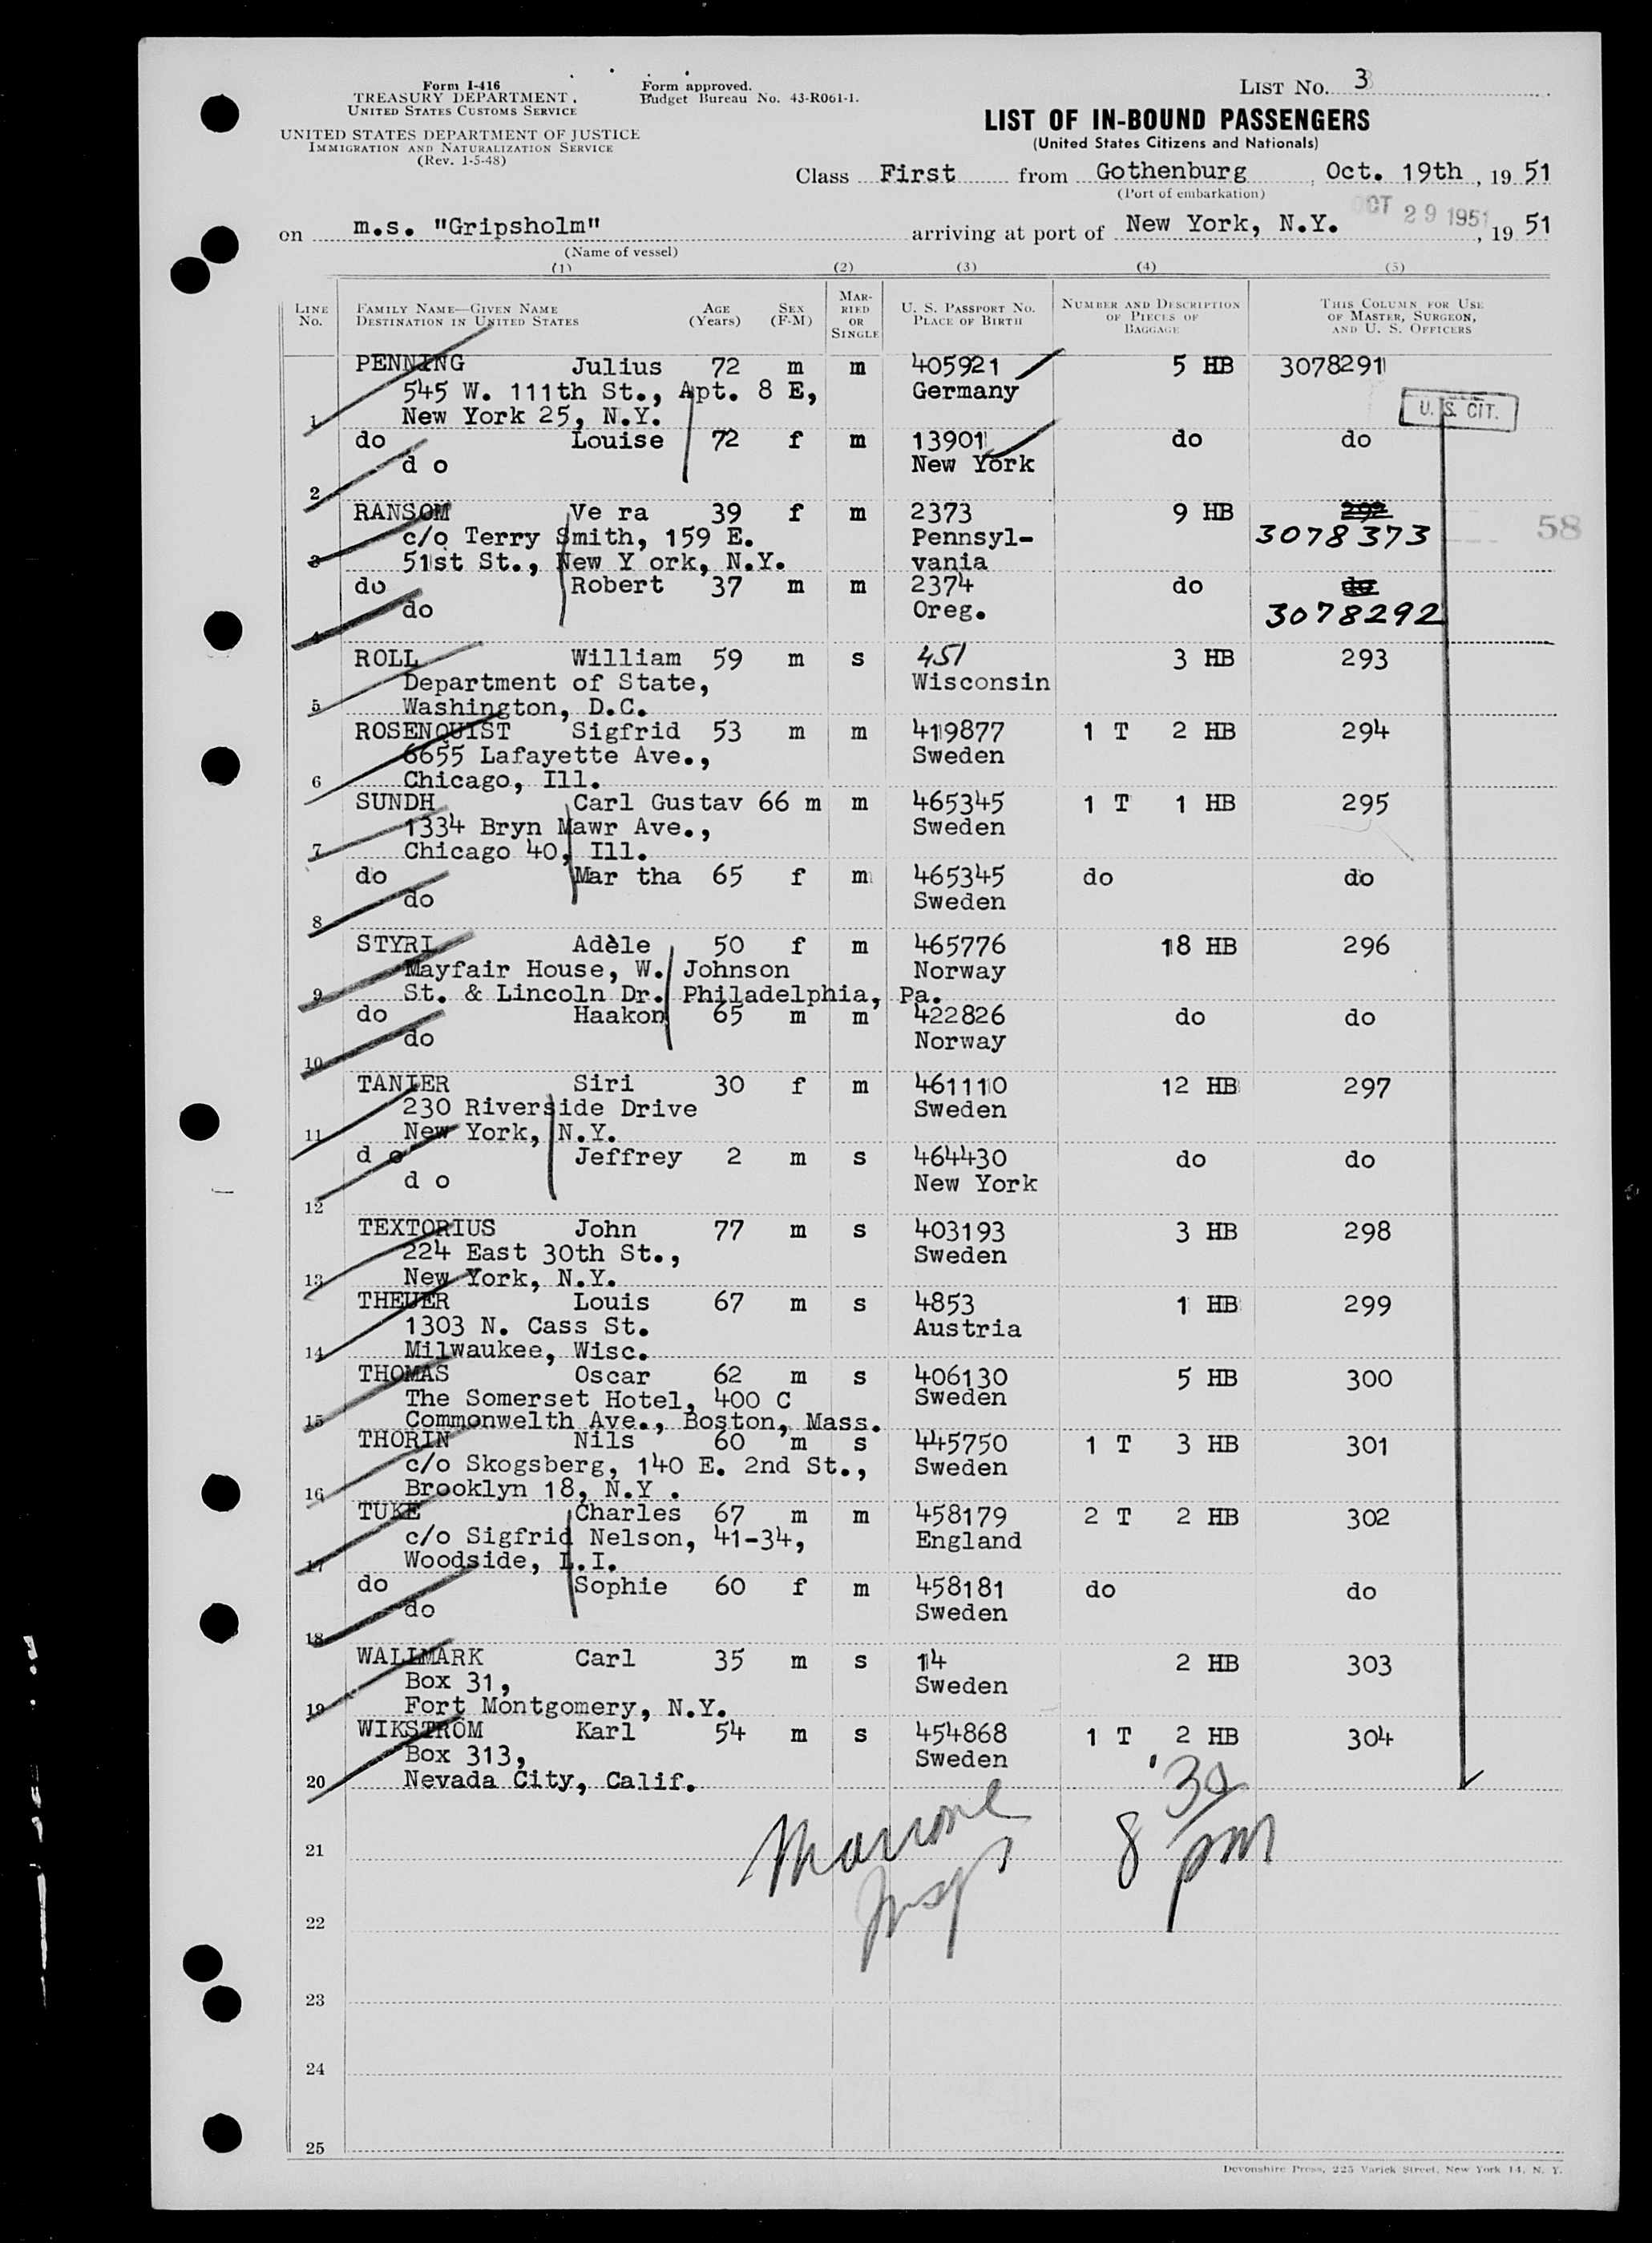 Form I-416
TREASURY DEPARTMENT
UNITED STATES CUSTOMS SERVICE
UNITED STATES DEPARTMENT OF JUSTICE
IMMIGRATION AND NATURALIZATION SERVICE
(Rev. 1-5-48)
Form approved.
Budget Bureau No. 43-R061-1.
LIST No. 3
LIST OF IN-BOUND PASSENGERS
(United States Citizens and Nationals)
Class First from Gothenburg, Oct. 19th, 19 51
(Port of embarkation)
on m.s. "Gripsholm" arriving at port of New York, N.Y. OCT 29 1951, 19 51
(Name of vessel)
(1) (2) (3) (4) (5)
LINE No. FAMILY NAME—GIVEN NAME DESTINATION IN UNITED STATES AGE (Years) SEX (F-M) MARRIED OR SINGLE U. S. PASSPORT NO. PLACE OF BIRTH NUMBER AND DESCRIPTION OF PIECES OF BAGGAGE THIS COLUMN FOR USE OF MASTER, SURGEON, AND U. S. OFFICERS
PENNING Julius 72 m m 405921 5 HB 3078291
545 W. 111th St., Apt. 8 E, Germany
U. S. CIT.
1 New York 25, N.Y.
do Louise 72 f m 13901 do do
d o New York
2
RANSOM Ve ra 39 f m 2373 9 HB 292
c/o Terry Smith, 159 E. Pennsyl- 3078373 58
3 51st St., New Y ork, N.Y. vania
do Robert 37 m m 2374 do do
do Oreg. 3078292
4
ROLL William 59 m s 451 3 HB 293
Department of State, Wisconsin
5 Washington, D.C.
ROSENQUIST Sigfrid 53 m m 419877 1 T 2 HB 294
6655 Lafayette Ave., Sweden
6 Chicago, Ill.
SUNDH Carl Gustav 66 m m 465345 1 T 1 HB 295
1334 Bryn Mawr Ave., Sweden
7 Chicago 40, Ill.
do Mar tha 65 f m 465345 do do
do Sweden
8
STYRI Adèle 50 f m 465776 18 HB 296
Mayfair House, W. Johnson Norway
9 St. & Lincoln Dr. Philadelphia, Pa.
do Haakon 65 m m 422826 do do
do Norway
10
TANIER Siri 30 f m 461110 12 HB 297
230 Riverside Drive Sweden
11 New York, N.Y.
d o Jeffrey 2 m s 464430 do do
d o New York
12
TEXTORIUS John 77 m s 403193 3 HB 298
224 East 30th St., Sweden
13 New York, N.Y.
THEUER Louis 67 m s 4853 1 HB 299
1303 N. Cass St. Austria
14 Milwaukee, Wisc.
THOMAS Oscar 62 m s 406130 5 HB 300
The Somerset Hotel, 400 C Sweden
15 Commonwelth Ave., Boston, Mass.
THORIN Nils 60 m s 445750 1 T 3 HB 301
c/o Skogsberg, 140 E. 2nd St., Sweden
16 Brooklyn 18, N.Y .
TUKE Charles 67 m m 458179 2 T 2 HB 302
c/o Sigfrid Nelson, 41-34, England
17 Woodside, L.I.
do Sophie 60 f m 458181 do do
do Sweden
18
WALLMARK Carl 35 m s 14 2 HB 303
Box 31, Sweden
19 Fort Montgomery, N.Y.
WIKSTRÖM Karl 54 m s 454868 1 T 2 HB 304
Box 313, Sweden
20 Nevada City, Calif.
8 30 pm
21
22
23
24
25
Devonshire Press, 225 Varick Street, New York 14, N. Y.